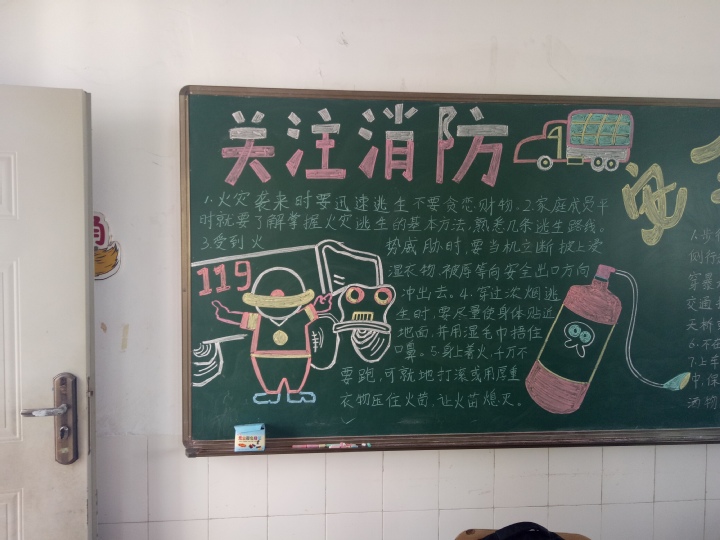 关注消防
1.火灾袭来时要迅速逃生不要贪恋财物。2.家庭成员平
时就要了解掌握火灾逃生的基本方法,熟悉几条逃生路线。
3.受到火
势威胁时,要当机立断披上浸
湿衣物、被褥等向安全出口方向
冲出去。4.穿过浓烟逃
生时,要尽量使身体贴近
地面,并用湿毛巾捂住
口鼻。5.身上着火,千万不
要跑,可就地打滚或用厚重
衣物压住火苗,让火苗熄灭。
119
安
侧行
穿
交通
天桥
6.不在
7.上车
中,保
酒物
角